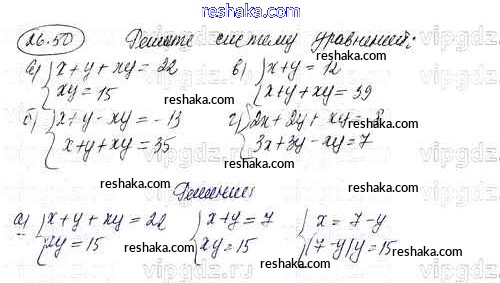 reshaka.com
26.50 Решите систему уравнений:
а) { x + y + xy = 22 в) { x + y = 12
xy = 15 x + y + xy = 39
б) { x + y - xy = -13 г) { 2x + 2y + xy =
x + y + xy = 35 3x + 3y - xy = 7
reshaka.com reshaka.com
reshaka.com reshaka.com
reshaka.com
Решение
reshaka.com
а) { x + y + xy = 22 { x + y = 7 { x = 7 - y
xy = 15 xy = 15 (7 - y)y = 15
reshaka.com reshaka.com
vipgdz.ru